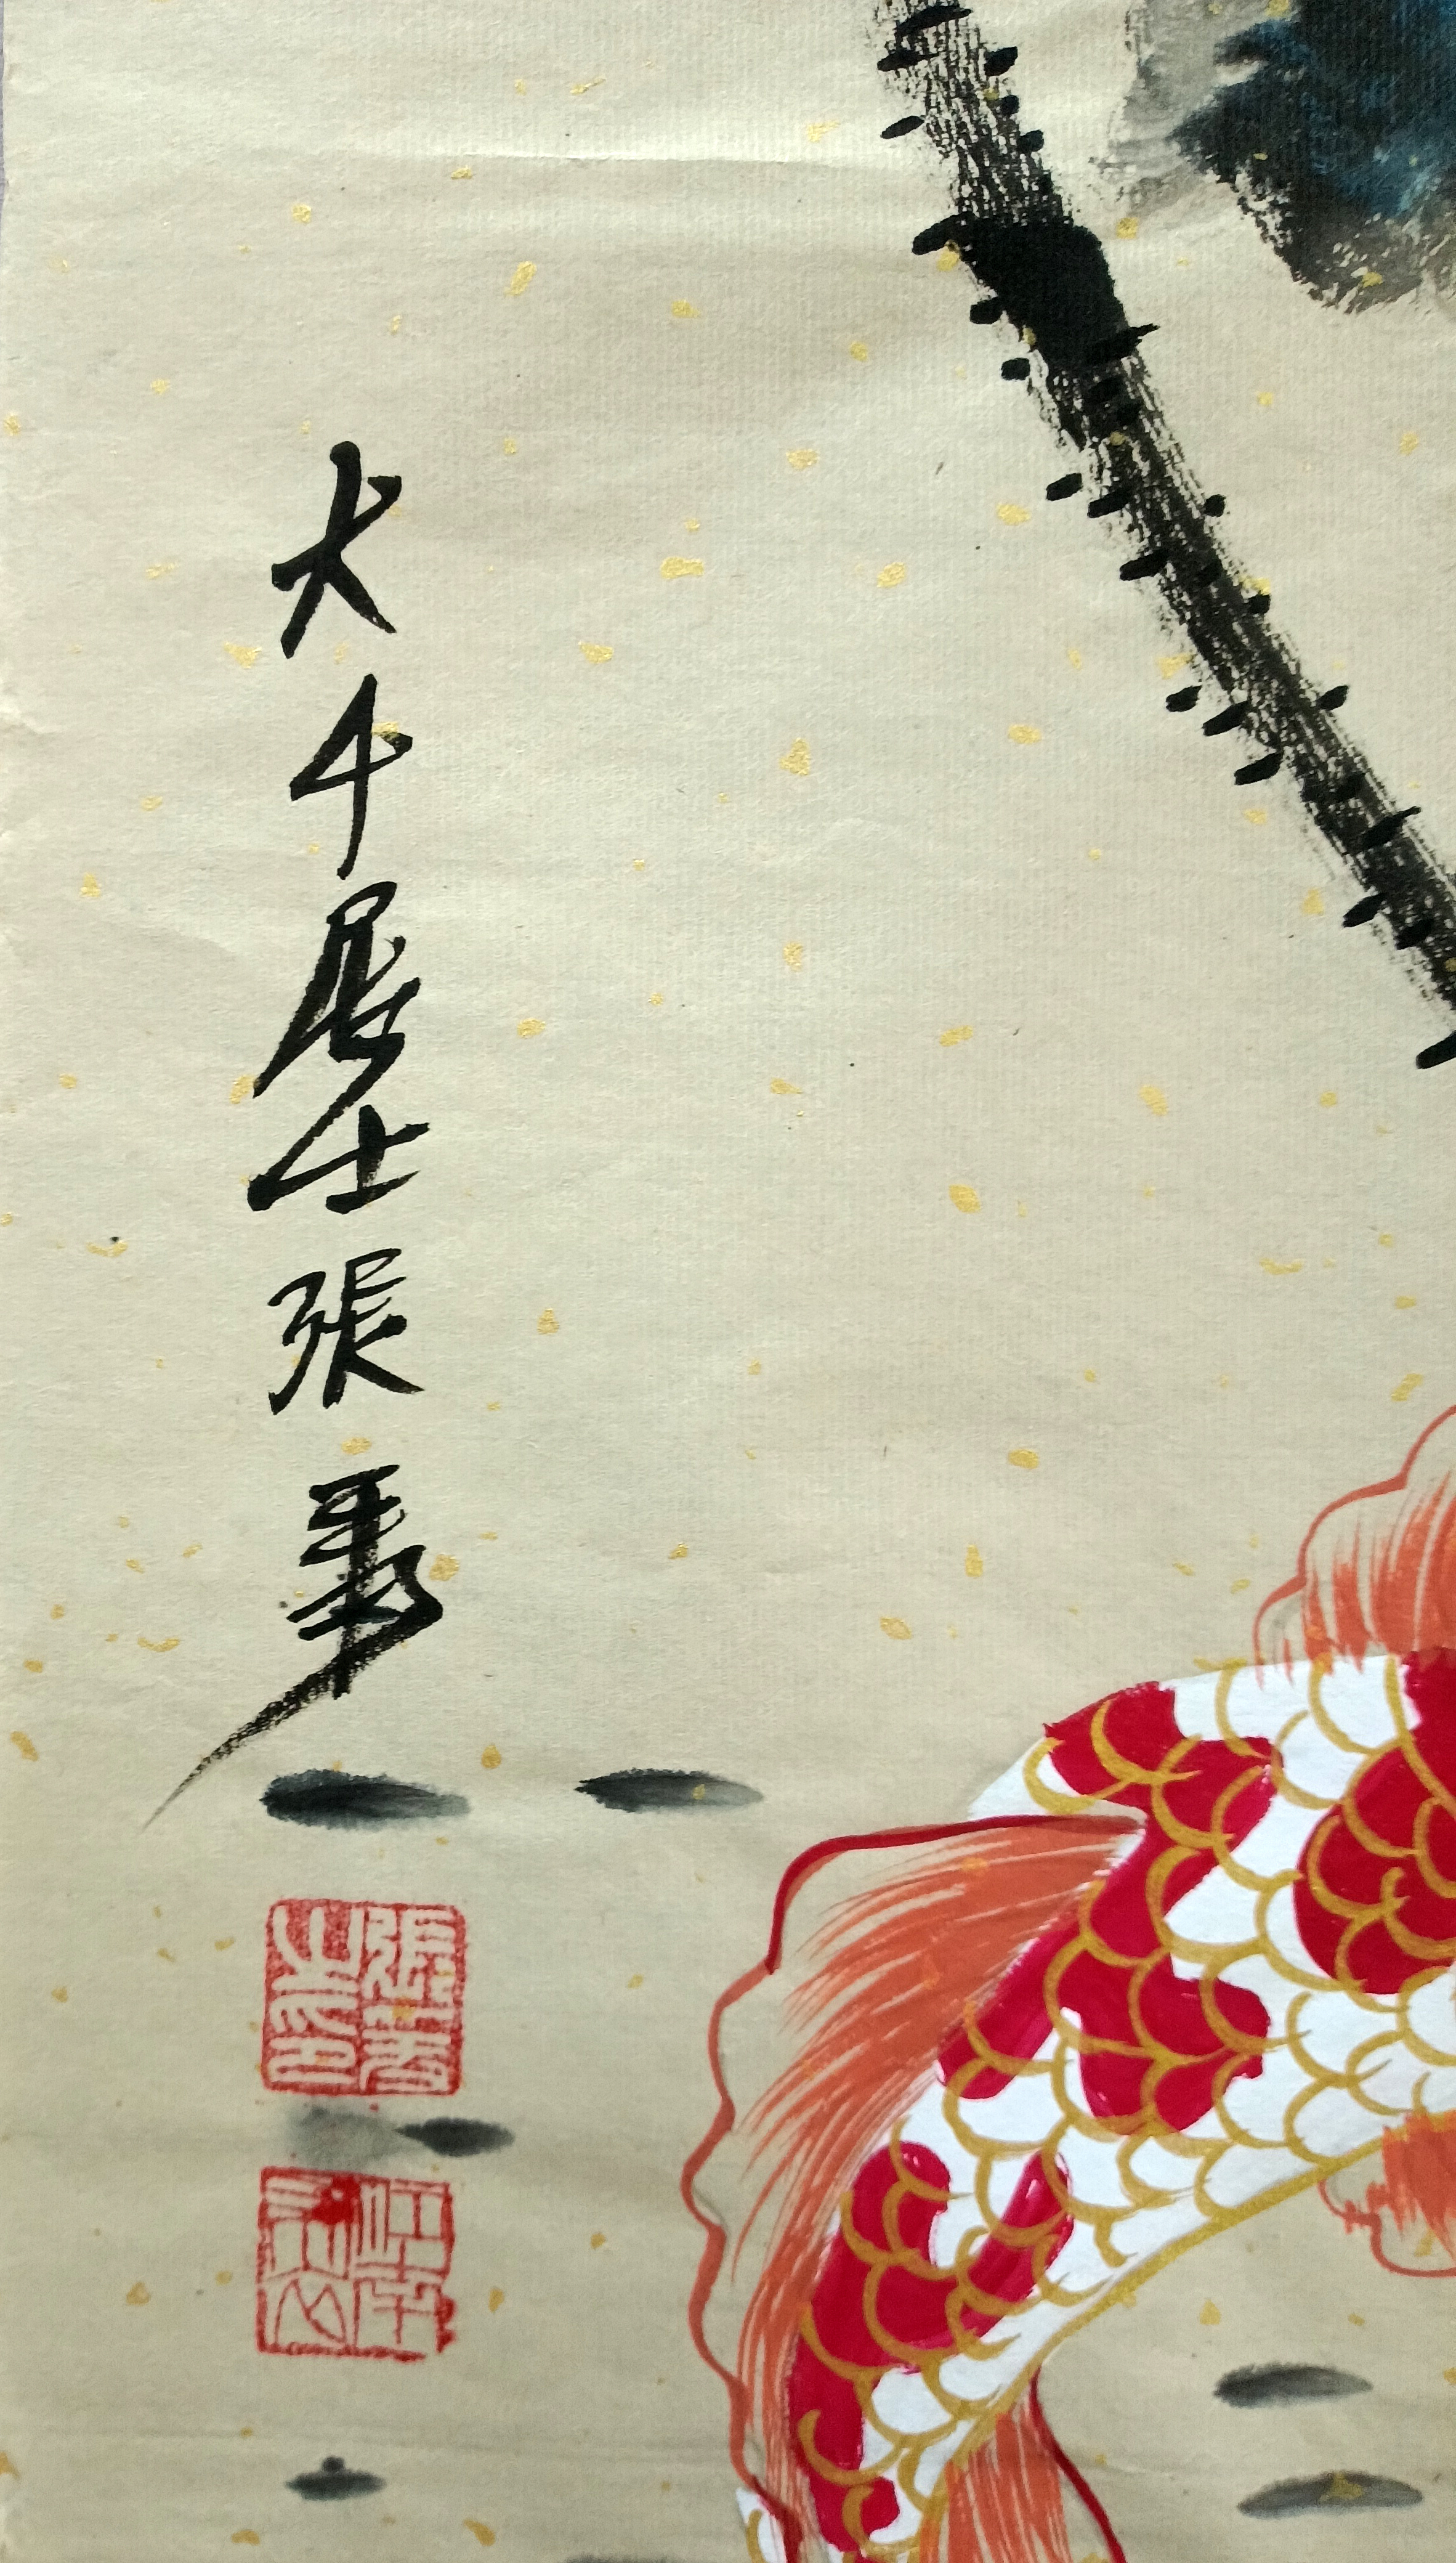 大千居士張爰
張爰
之印